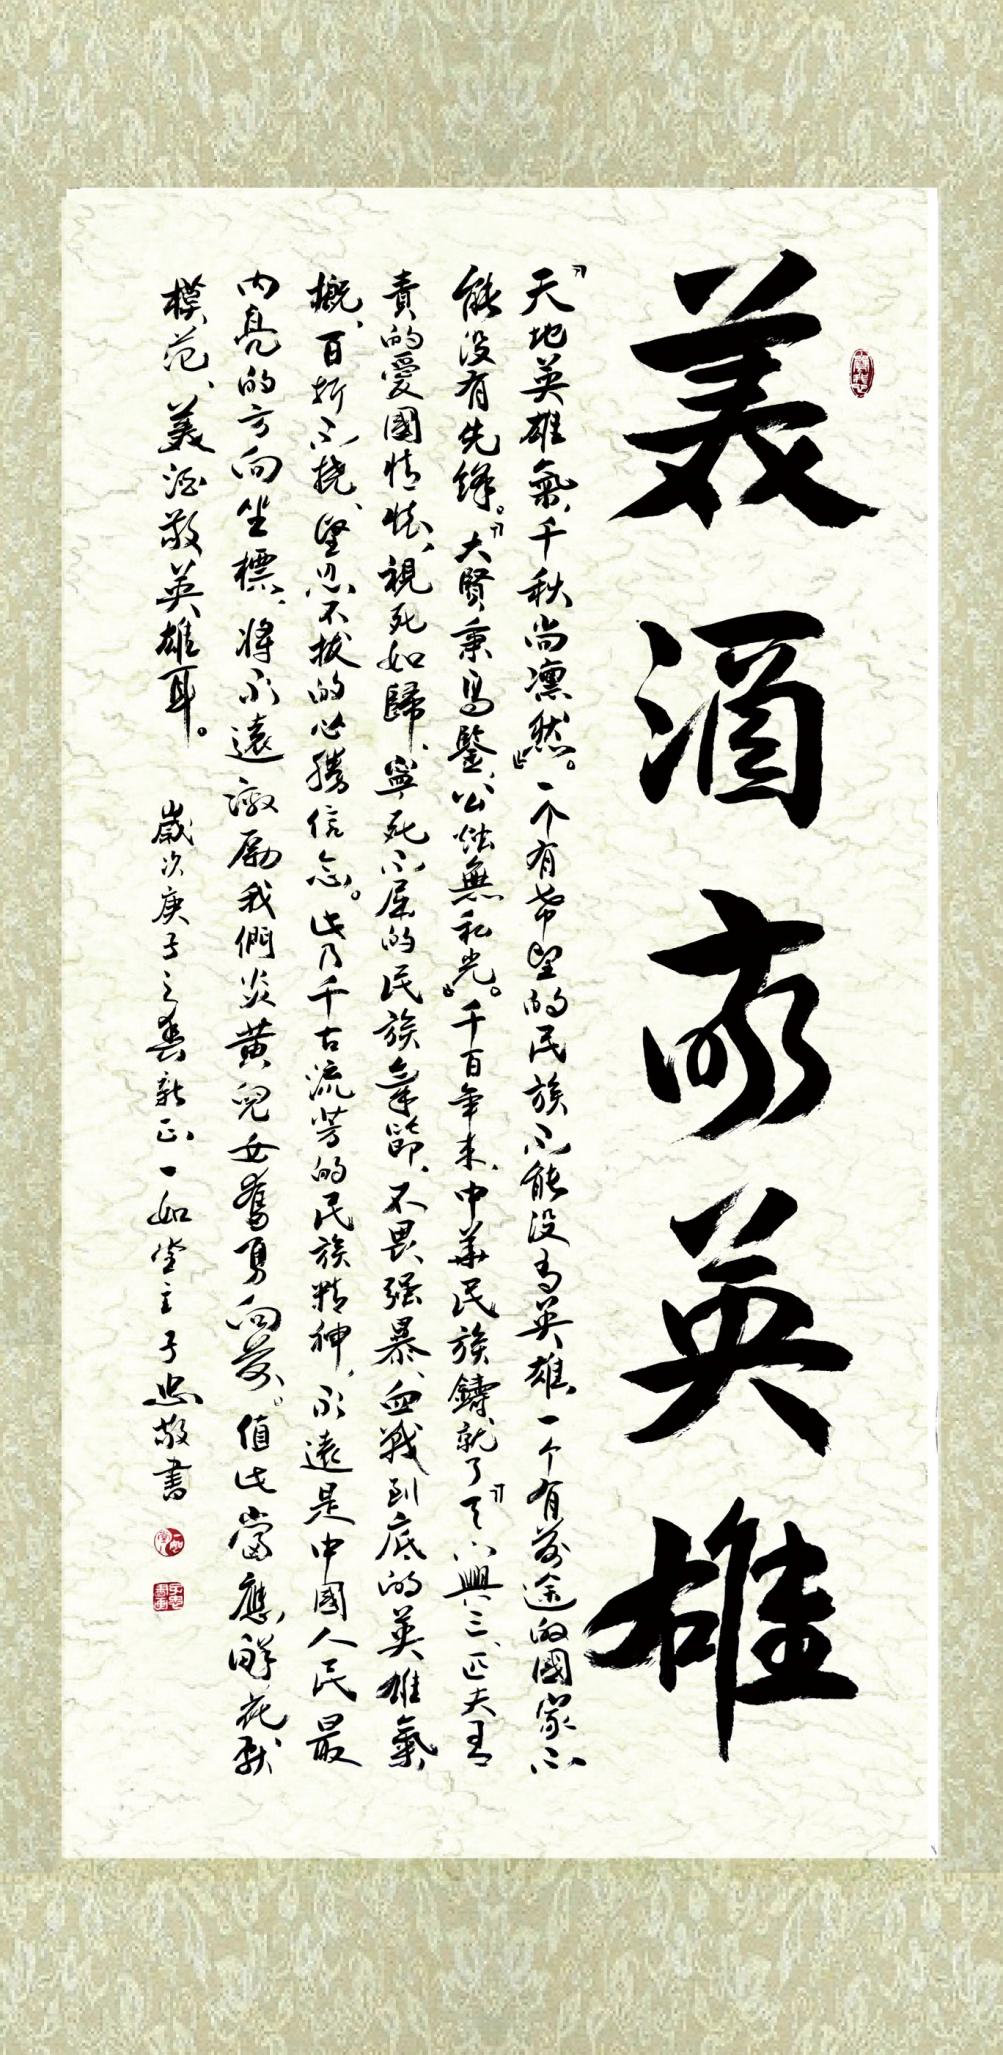 美酒敬英雄
『天地英雄氣，千秋尚凛然。』一个有希望的民族不能没有英雄，一个有前途的國家不
能没有先鋒。『大賢秉高鑒，公燭無私光。』千百年來，中華民族鑄就了『天下興亡、匹夫有
責的愛國情懷，視死如歸、寧死不屈的民族氣節，不畏强暴、血戰到底的英雄氣
概，百折不撓、堅忍不拔的必勝信念。此乃千古流芳的民族精神，永遠是中國人民最
内亮的方向坐標，將永遠激励我們炎黄兒女奮勇向前。值此當應鮮花獻
模范、美酒敬英雄耳。
歲次庚子之春新正一如堂主子忠敬書